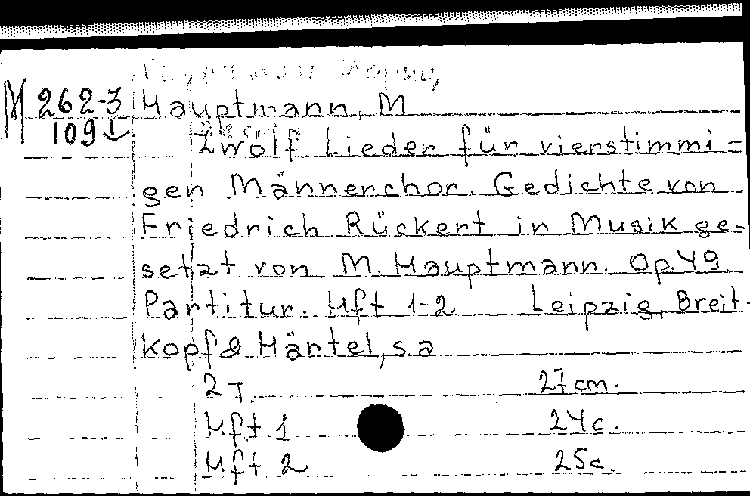 M 262-3 Hauptmann, M
109 Zwölf Lieder für vierstimmi=
gen Männerchor. Gedichte von
Friedrich Rückert in Musik ge=
setzt von M. Hauptmann. Op. 49
Partitur. Hft 1-2 Leipzig, Breit-
kopf & Härtel, s.a
2 т. 27 cm.
Hft 1 24 c.
Hft 2 25 c.